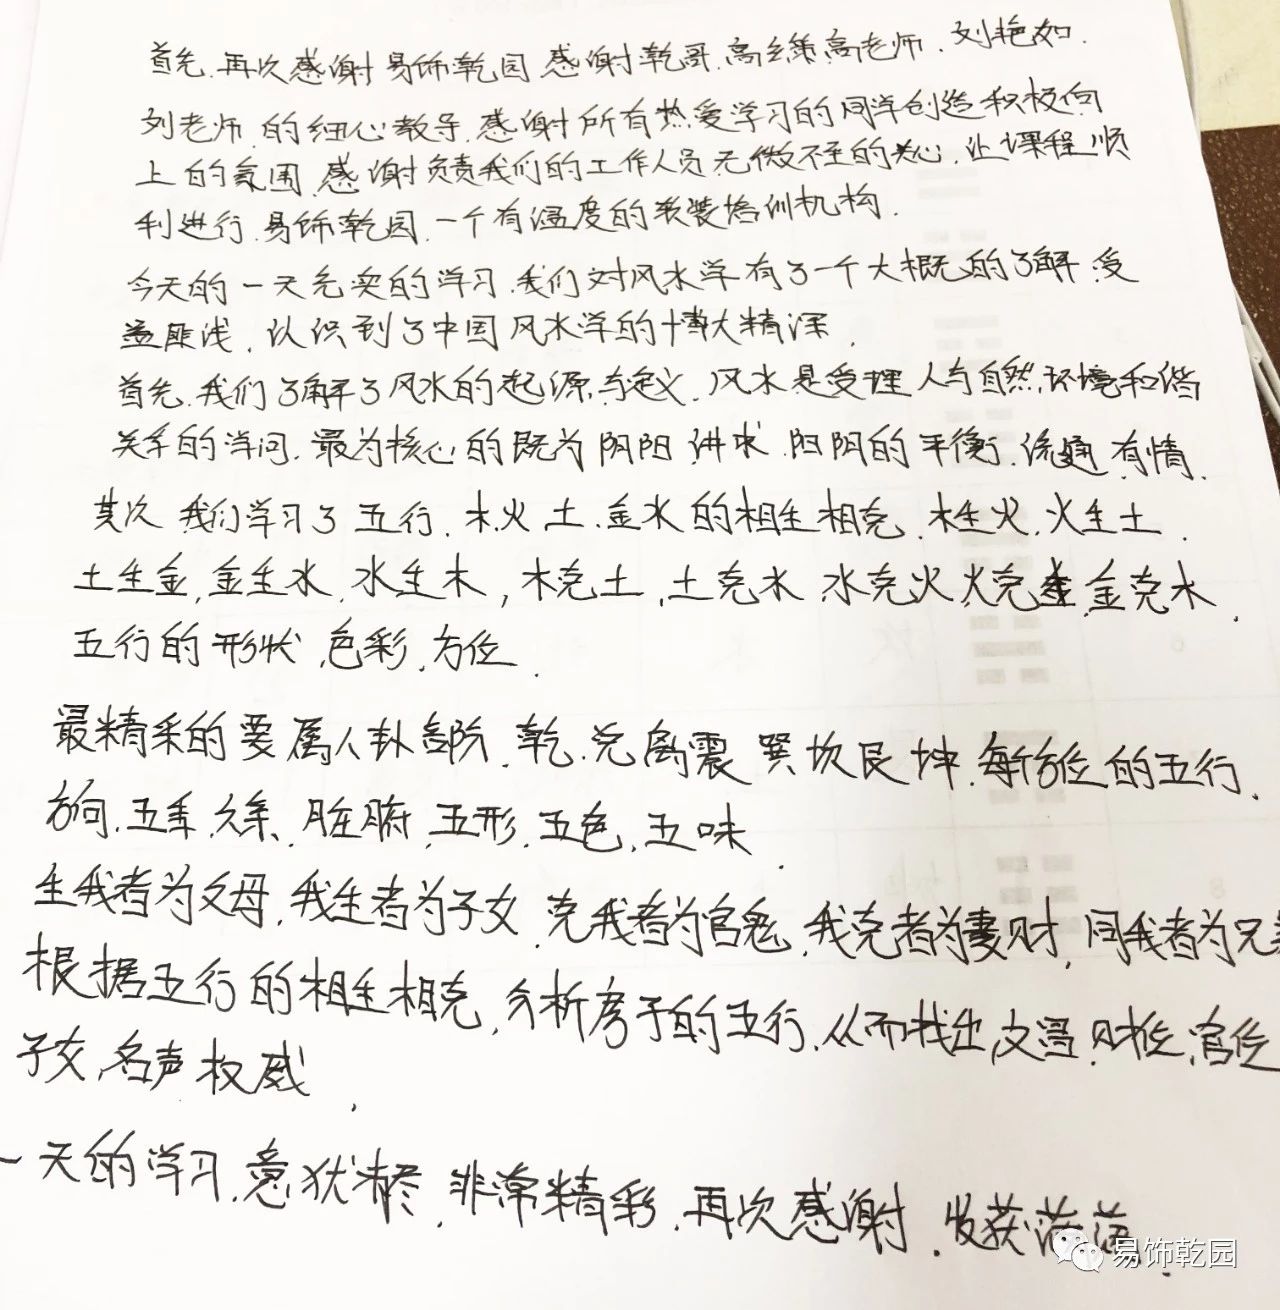 首先.再次感谢易饰乾园.感谢乾哥.高老师.刘艳如.
刘老师.的细心教导.感谢所有热爱学习的同学创造积极向
上的氛围.感谢负责我们的工作人员无微不至的关心.让课程顺
利进行.易饰乾园.一个有温度的软装培训机构.
今天的一天充实的学习.我们对风水学有了一个大概的了解.受
益匪浅.认识到了中国风水学的博大精深.
首先.我们了解了风水的起源与定义.风水是受理人与自然.环境和谐
关系的学问.最为核心的既为阴阳.讲求.阳阴的平衡.流通.有情.
其次.我们学习了五行.木.火.土.金水的相生相克.木生火.火生土.
土生金,金生水.水生木,木克土,土克水.水克火.火克金.金克木.
五行的形状.色彩.方位.
最精采的要属八卦部分.乾.兑离震巽坎艮坤.每个方位的五行.
方向.五季.关系.脏腑.五形.五色.五味.
生我者为父母.我生者为子女.克我者为官鬼.我克者为妻财.同我者为兄弟
根据五行的相生相克.分析房子的五行.从而找出,文昌.财位.官位
子女.名声权威.
一天的学习.意犹未尽.非常精彩.再次感谢.收获满满.
易饰乾园